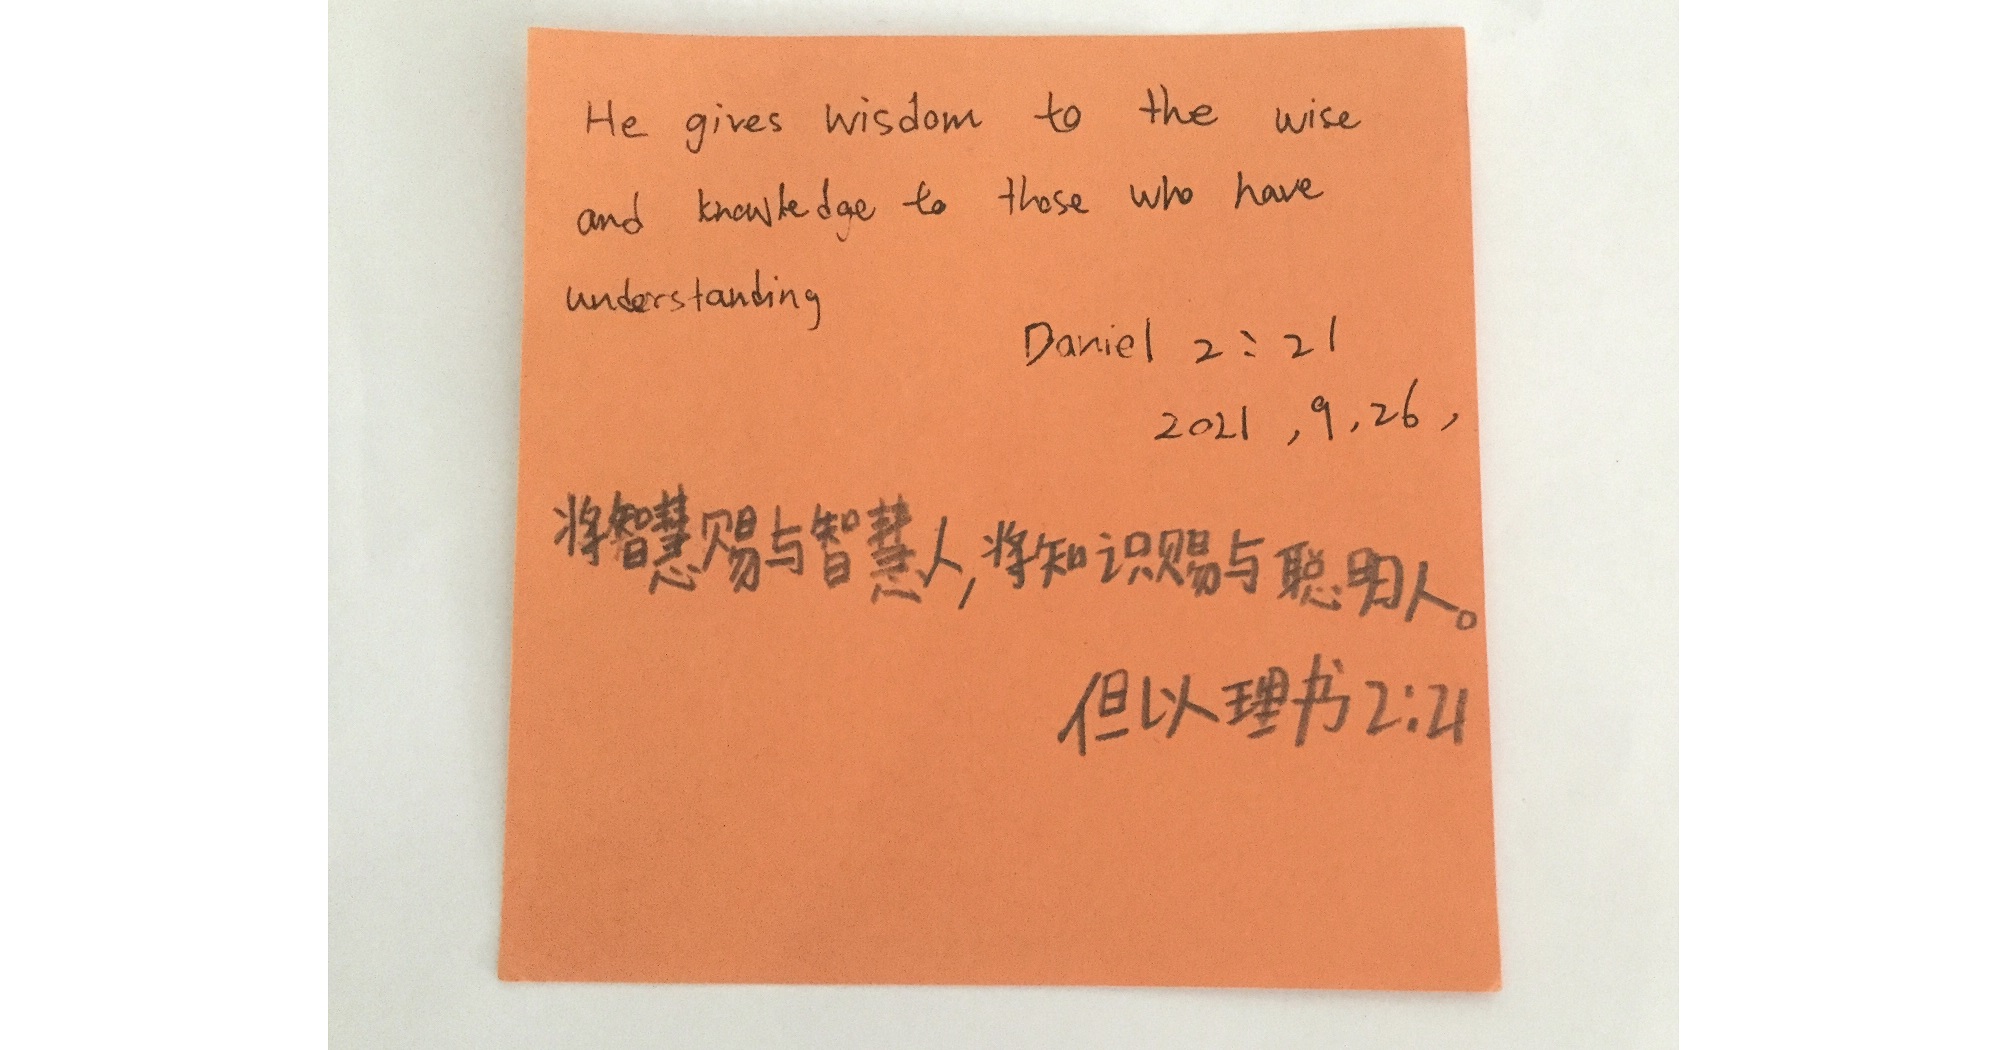 He gives wisdom to the wise
and knowledge to those who have
understanding
Daniel 2:21
2021,9,26,
将智慧赐与智慧人,将知识赐与聪明人。
但以理书2:21